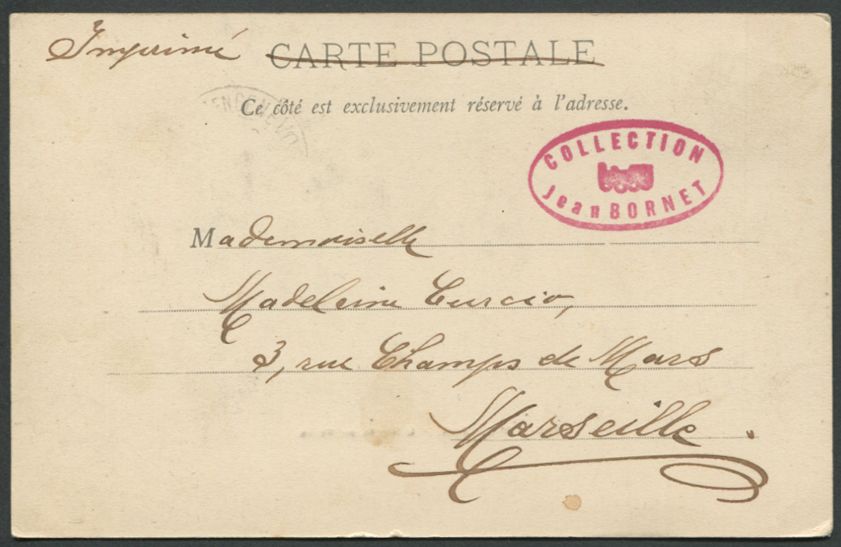 Imprimé
CARTE POSTALE
Ce côté est exclusivement réservé à l'adresse.
COLLECTION
Jean BORNET
Mademoiselle
Madeleine Curcio,
3, rue Champs de Mars
Marseille.